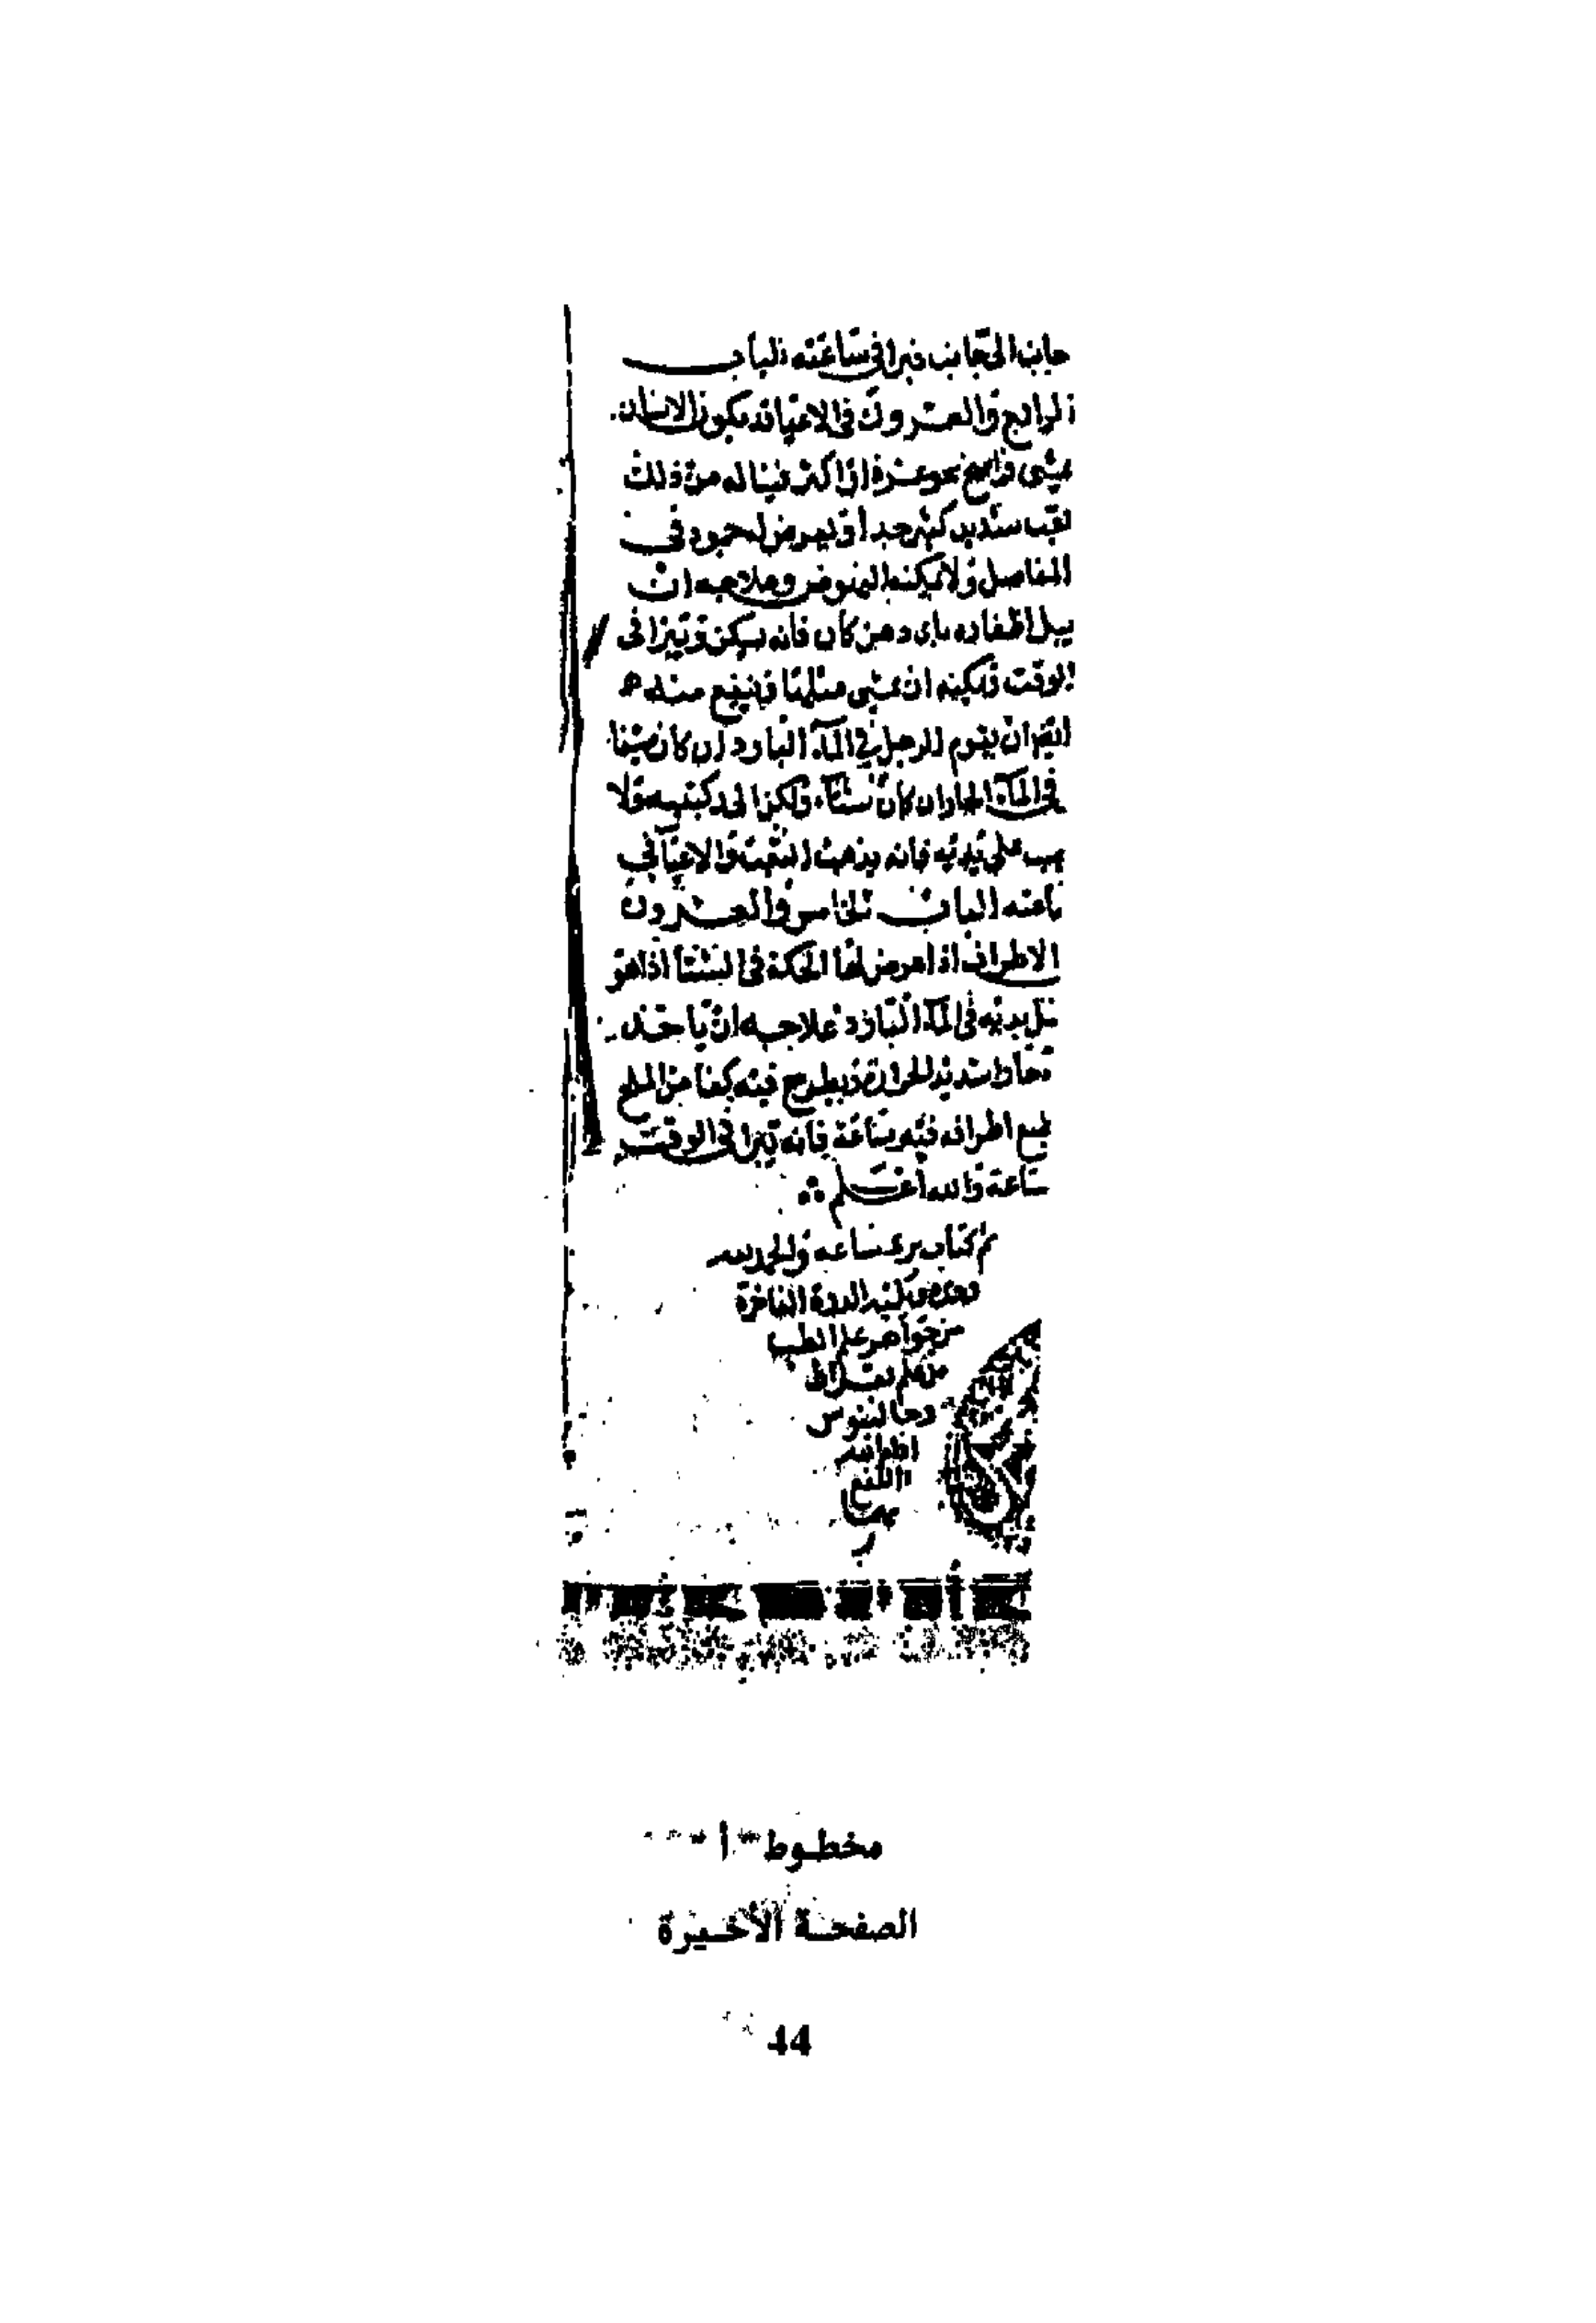 جانب الى جانب فيبرا في ساعته الباب
الرابع والعشرون في الاعيا قد يكون الانسان
يمشي فراسخ نحو عشرة او اكثر فيناله من ذلك
تعب شديد كثير جدا او يعرض له جمود في
المفاصل ولا يمكنه النهوض وعلاجه ان
يبل اظفاره باي دهن كان فانه يسكن ويبرا في
الوقت ويمكنه ان يمشي مثلها وينفع منه
ايضا ان يقوم الرجل في الماء البارد ان كان صيفا
في الماء الحار ان كان شتاء ولكن الى ركبتيه ولا
يصب على بدنه فانه يذهب التعب والاعيا في
ساعته الباب الخامس والعشرون
الاطراف اذا عرض لها الحكة في الشتا اذا هو
نزل بدنه في الماء البارد علاجه ان ياخذ
ماء حارا شديد الحرارة ويطرح فيه كفا من الملح
يضع اطرافه فيه ساعة فانه يبرا في الوقت
ساعة والله اعلم
تم كتاب برء ساعه والحمد لله
وحده ويليه الدرة الفاخرة
من جواهر علم الطب
من علم بقراط
وجالينوس
النفع
مخطوط "أ"
الصفحة الأخيرة
44